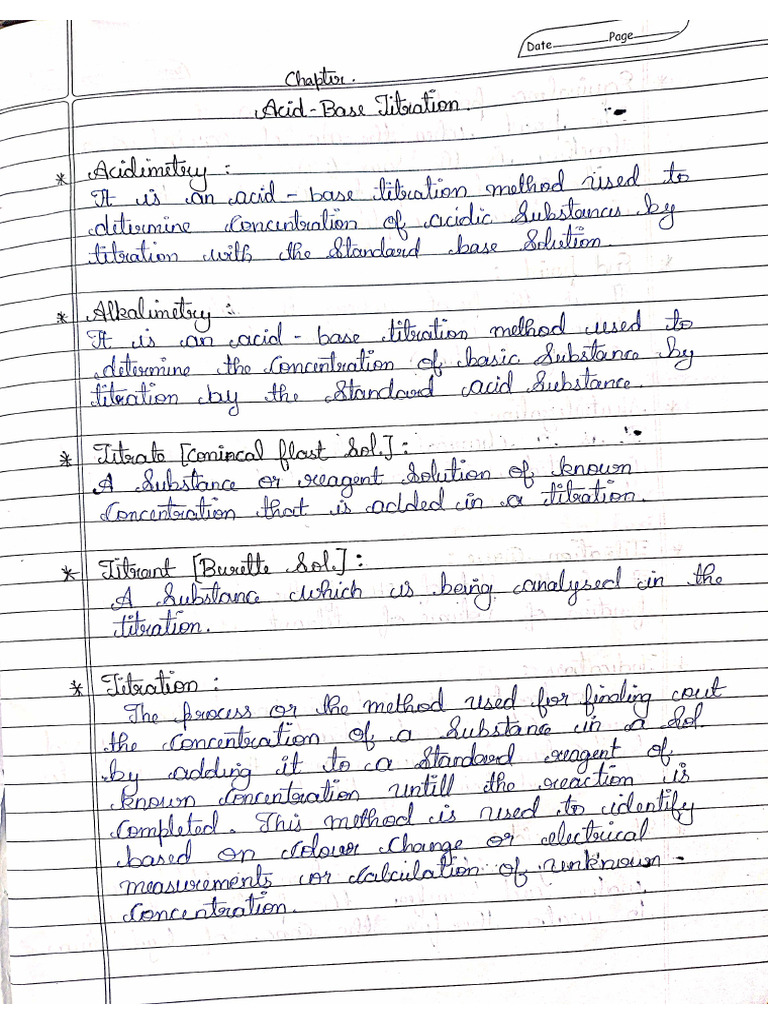 Date Page
Chapter.
Acid-Base Titration.
* Acidimetry :
It is an acid - base titration method used to
determine concentration of acidic Substances by
titration with the Standard base Solution.
* Alkalimetry :
It is an acid - base titration method used to
determine the concentration of basic Substance by
titration by the Standard acid Substance.
* Titrate [conincal flast Sol.] :
A Substance or reagent Solution of known
Concentration that is added in a titration.
* Titrant [Burette Sol.] :
A Substance which is being analysed in the
titration.
* Titration :
The process or the method used for finding out
the concentration of a Substance in a Sol.
by adding it to a Standard reagent of
known concentration untill the reaction is
Completed. This method is used to identify
based on colour change or electrical
measurements or calculation of unknown -
Concentration.